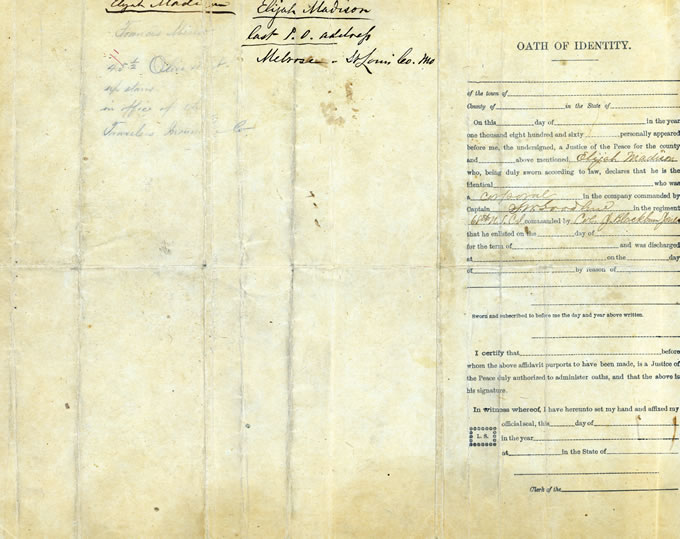 Elijah Madison
Francis
45th Olive
up stairs
in office of
Travelers Co
Elijah Madison
last P. O. address
Melrose - St Louis Co. Mo
OATH OF IDENTITY.
of the town of
County of in the State of
On this day of in the year
one thousand eight hundred and sixty personally appeared
before me, the undersigned, a Justice of the Peace for the county
and above mentioned, Elijah Madison
who, being duly sworn according to law, declares that he is the
identical who was
a corporal in the company commanded by
Captain in the regiment
68th U.S.C.I commanded by Coln J Blackburn Jones
that he enlisted on the day of
for the term of and was discharged
at on the day
of by reason of
Sworn and subscribed to before me the day and year above written.
I certify that before
whom the above affidavit purports to have been made, is a Justice of
the Peace duly authorized to administer oaths, and that the above is
his signature.
In witness whereof, I have hereunto set my hand and affixed my
official seal, this day of
L. S.
in the year
at in the State of
Clerk of the